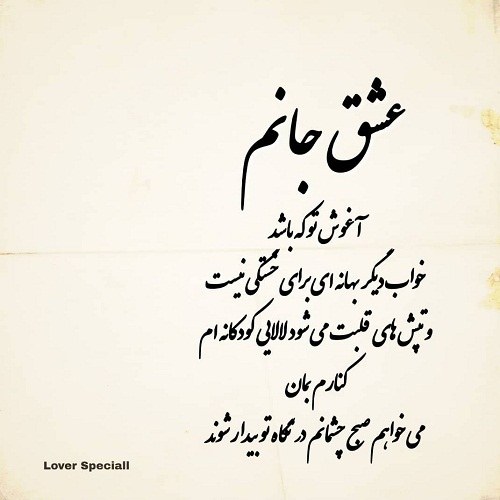 عشق جانم
آغوش تو که باشد
خواب دیگر بهانه ای برای خستگی نیست
و تپش های قلبت می شود لالایی کودکانه ام
کنارم بمان
می خواهم صبح چشمانم در نگاه تو بیدار شوند
Lover Speciall